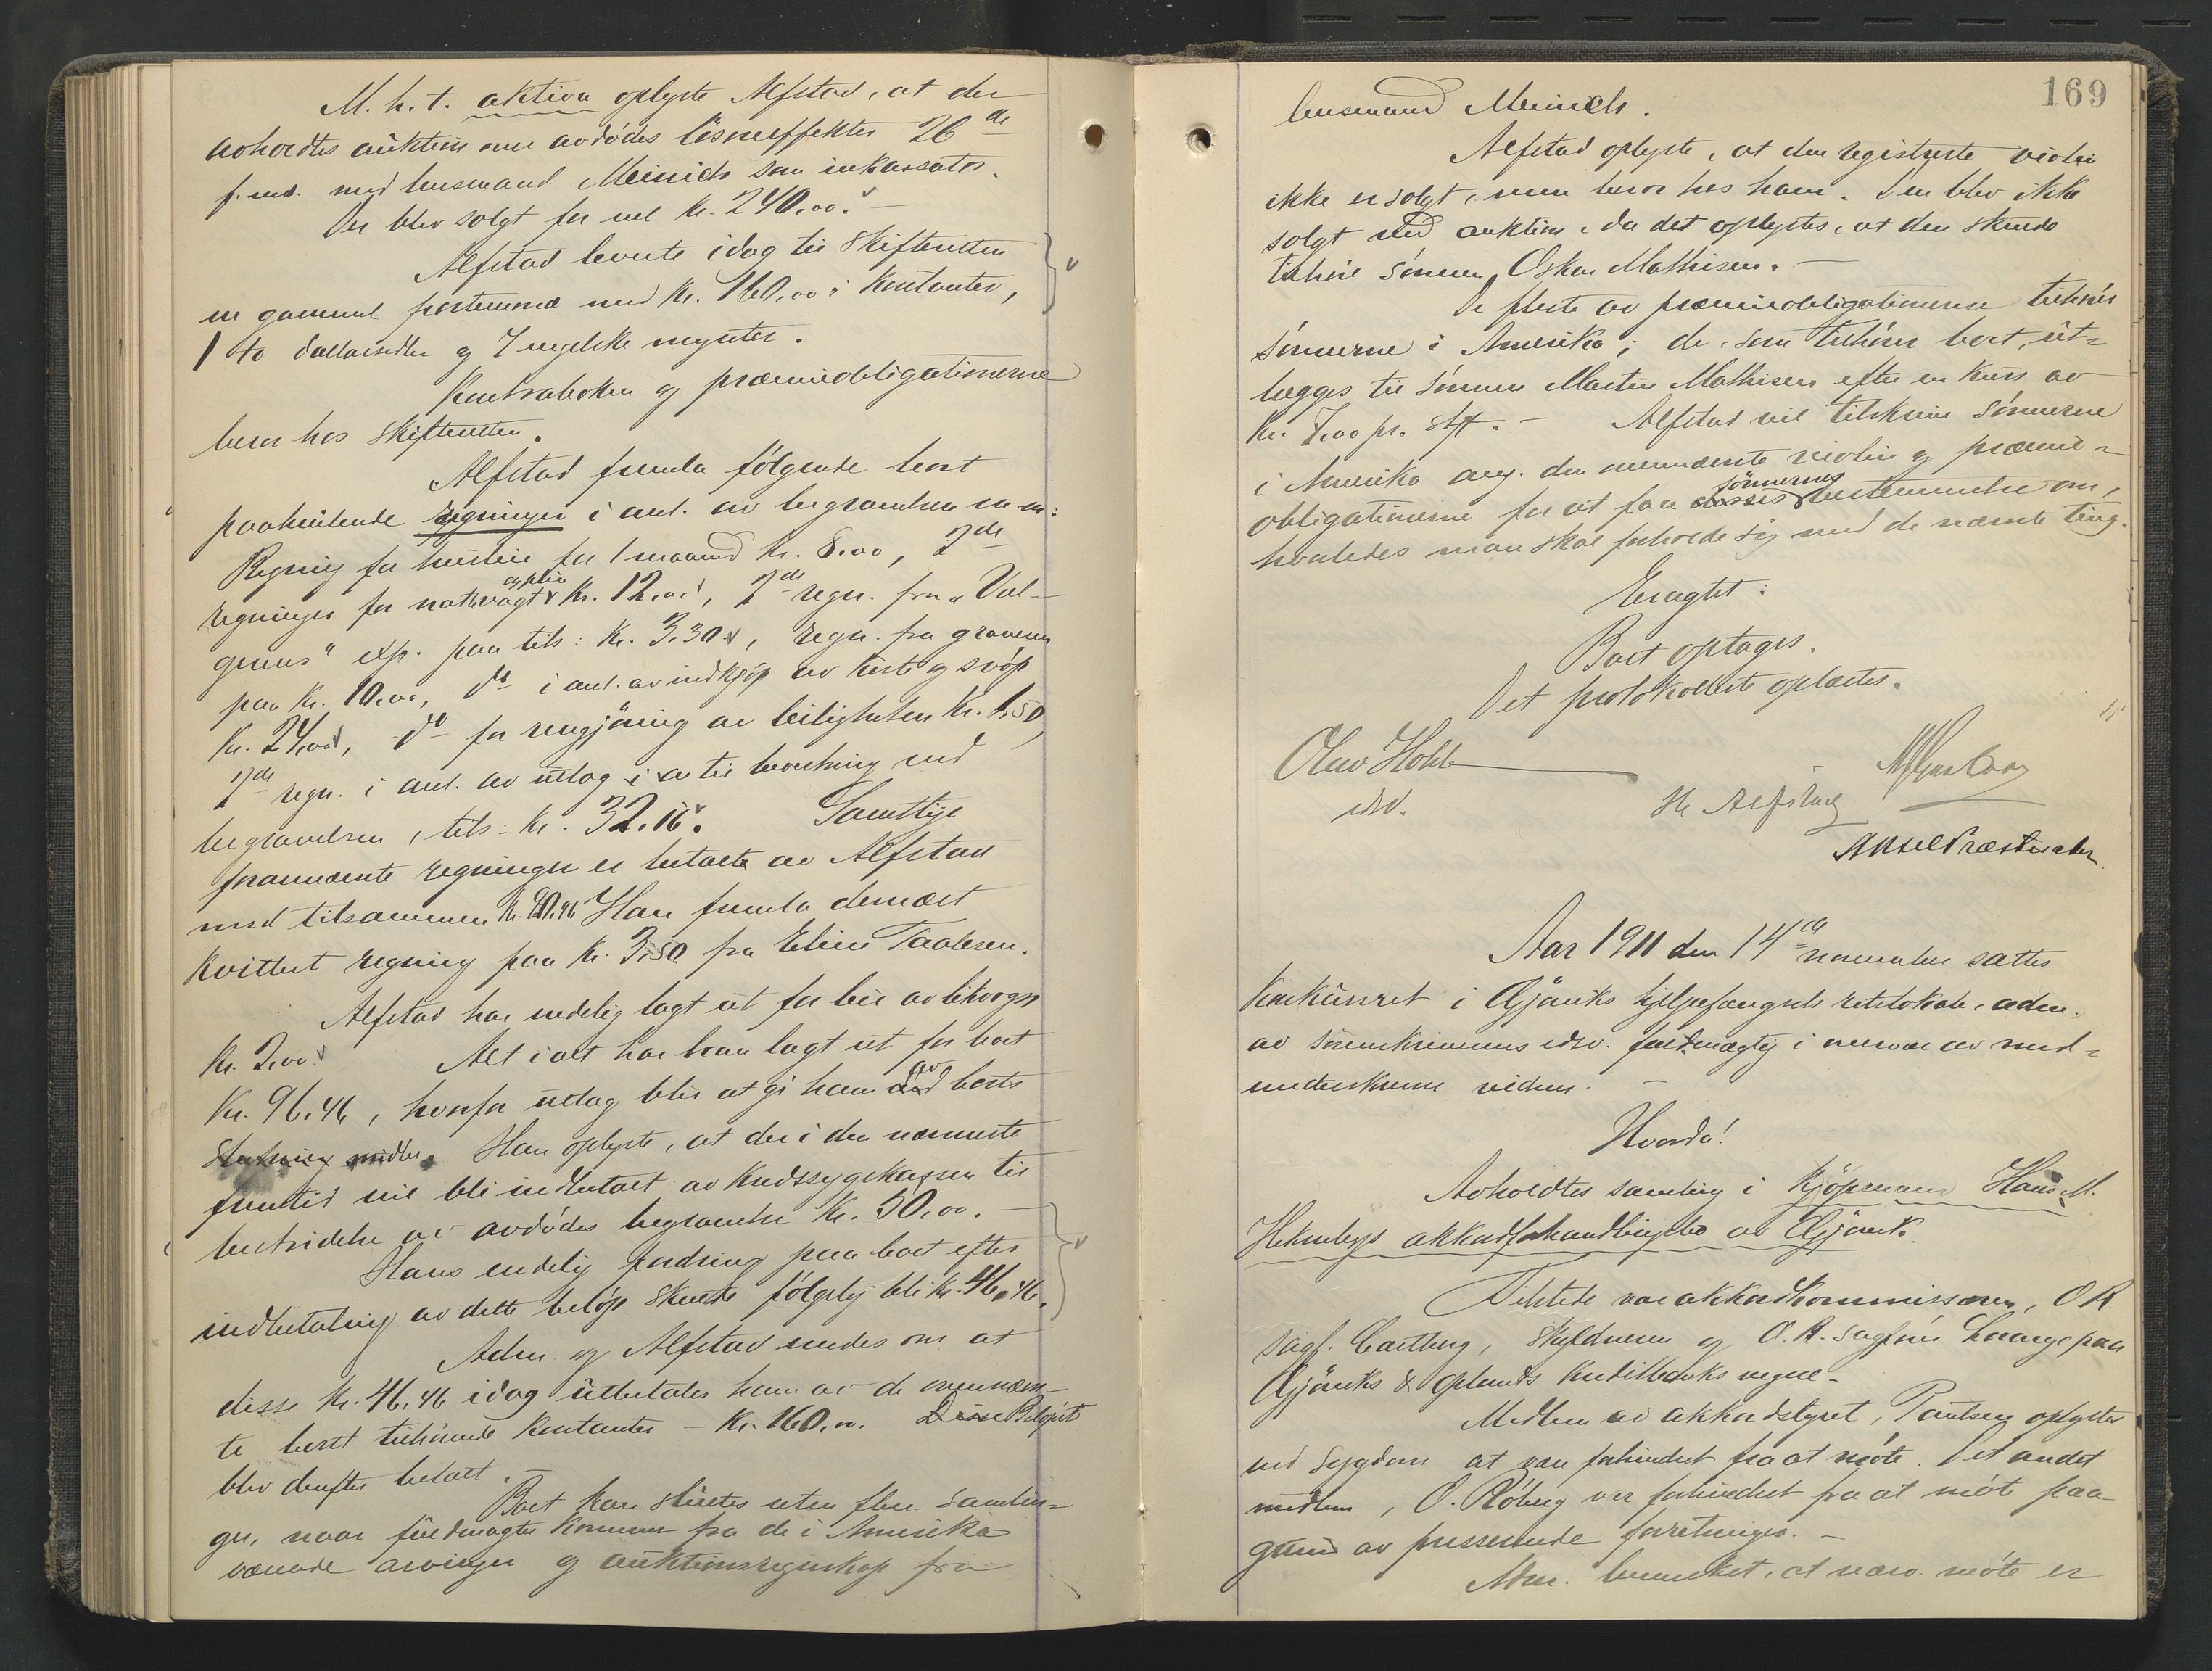 M. h. t. aktiva oplyste Alfstad, at der
avholdtes auktion over avdødes løsøreeffekter 26de
f. md. med lensmand Meinich som inkassator.
Der blev solgt for vel kr. 240,00.
Alfstad leverte idag til skifteretten
en gammel portemonnæ med kr. 160,00 i kontanter,
1 to dollarseddel og 7 engelske mynter.
Kontraboken og præmieobligationerne
beror hos skifteretten.
Alfstad fremla følgende boet
paahvilende regninger i anl. av begravelsen m.m:
Regning for husleie for 1 maaned kr. 8.00, 2de
og pleie
regninger for nattevagt kr. 12,00, 2de regn. fra "Val-
gerens" exp. paa tils: kr. 3,30, regn. fra graveren
paa kr. 10,00, do i anl. av indkjøp av kiste og svøp
kr. 24,00, do for rengjøring av leiligheten kr. 1,50,
2de regn. i anl. av utlæg til bevertning ved
begravelsen, tils: kr. 32.16. Samtlige
forannævnte regninger er betalte av Alfstad
med tilsammen kr. 90.96 Han fremla dernæst
kvittert regning paa kr. 3,50 fra Eline Paalesen.
Alfstad har endelig lagt ut for leie av likvogn
kr. 2,00. Alt i alt har han lagt ut for boet
kr. 96,46, hvorfor utlæg blir at gi ham av boets
midler. Han oplyste, at der i den nærmeste
fremtid vil bli indbetalt av kredssygekassen til
bestridelse av avdødes begravelse kr. 50,00.
Hans endelig fordring paa boet efter
indbetaling av dette beløp skulde følgelig bli kr. 46,46.
Adm. og Alfstad enedes om at
disse kr. 46,46 idag utbetales ham av de ovennævn-
te boet tilhørende kontanter – kr. 160,00. Disse Beløpet
blev derefter betalt.
Boet kan sluttes uten flere samlin-
ger, naar fuldmagter kommer fra de i Amerika
værende arvinger og auktionsregnskap fra
169
lensmand Meinich.
Alfstad oplyste, at den registrerte violin
ikke er solgt, men beror hos ham. Den blev ikke
solgt ved auktion, da det oplystes, at den skulde
tilhøre sønnen, Oskar Mathisen.
De fleste av præmieobligationerne tilhører
sønnerne i Amerika; de, som tilhører boet, ut-
lægges til sønnen Martin Mathisen efter en kurs av
kr. 7,00 pr. stk. – Alfstad vil tilskrive sønnerne
i Amerika ang. den ovennævnte violin og præmie-
sønnernes
obligationerne for at faa disses bestemmelse om,
hvorledes man skal forholde sig med de nævnte ting.
Eragtet:
Boet optages.
Det protokollerte oplæstes.
Olav Hohle
edsv.
H. Alfstad
Aksel Præsteseter
Aar 1911 den 14de november sattes
konkursret i Gjøviks hjelpefængsels retslokale, adm.
av sorenskriverens edsv. fuldmægtig i nærvær av med-
underskrevne vidner.
Hvorda!
Avholdtes samling i kjøpmand Hans M.
Heknebys akkordforhandlingsbo av Gjøvik.
Tilstede var akkordkommissæren, O.R.
sagf. Castberg, skyldneren og O.R. sagfører Lange paa
Gjøviks & Oplands kreditbanks vegne.
Medlem av akkordstyret, Paulsen oplystes
ved sygdom at være forhindret fra at møte. Det andet
medlem, O. Røberg var forhindret fra at møte paa
grund av presserende forretninger.
Adm. bemerket, at nærv. møte er